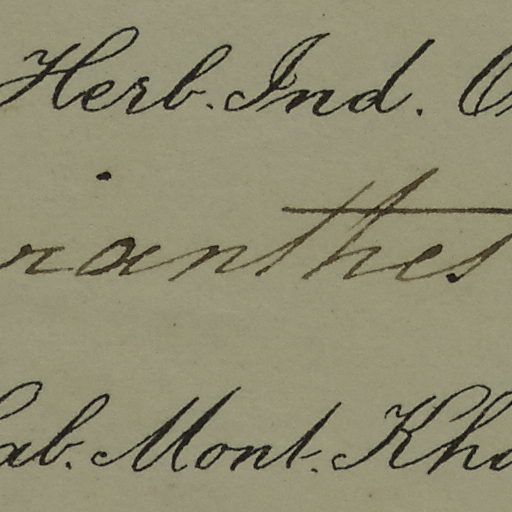 Herb. Ind. O
rianthes
ab. Mont. Kha